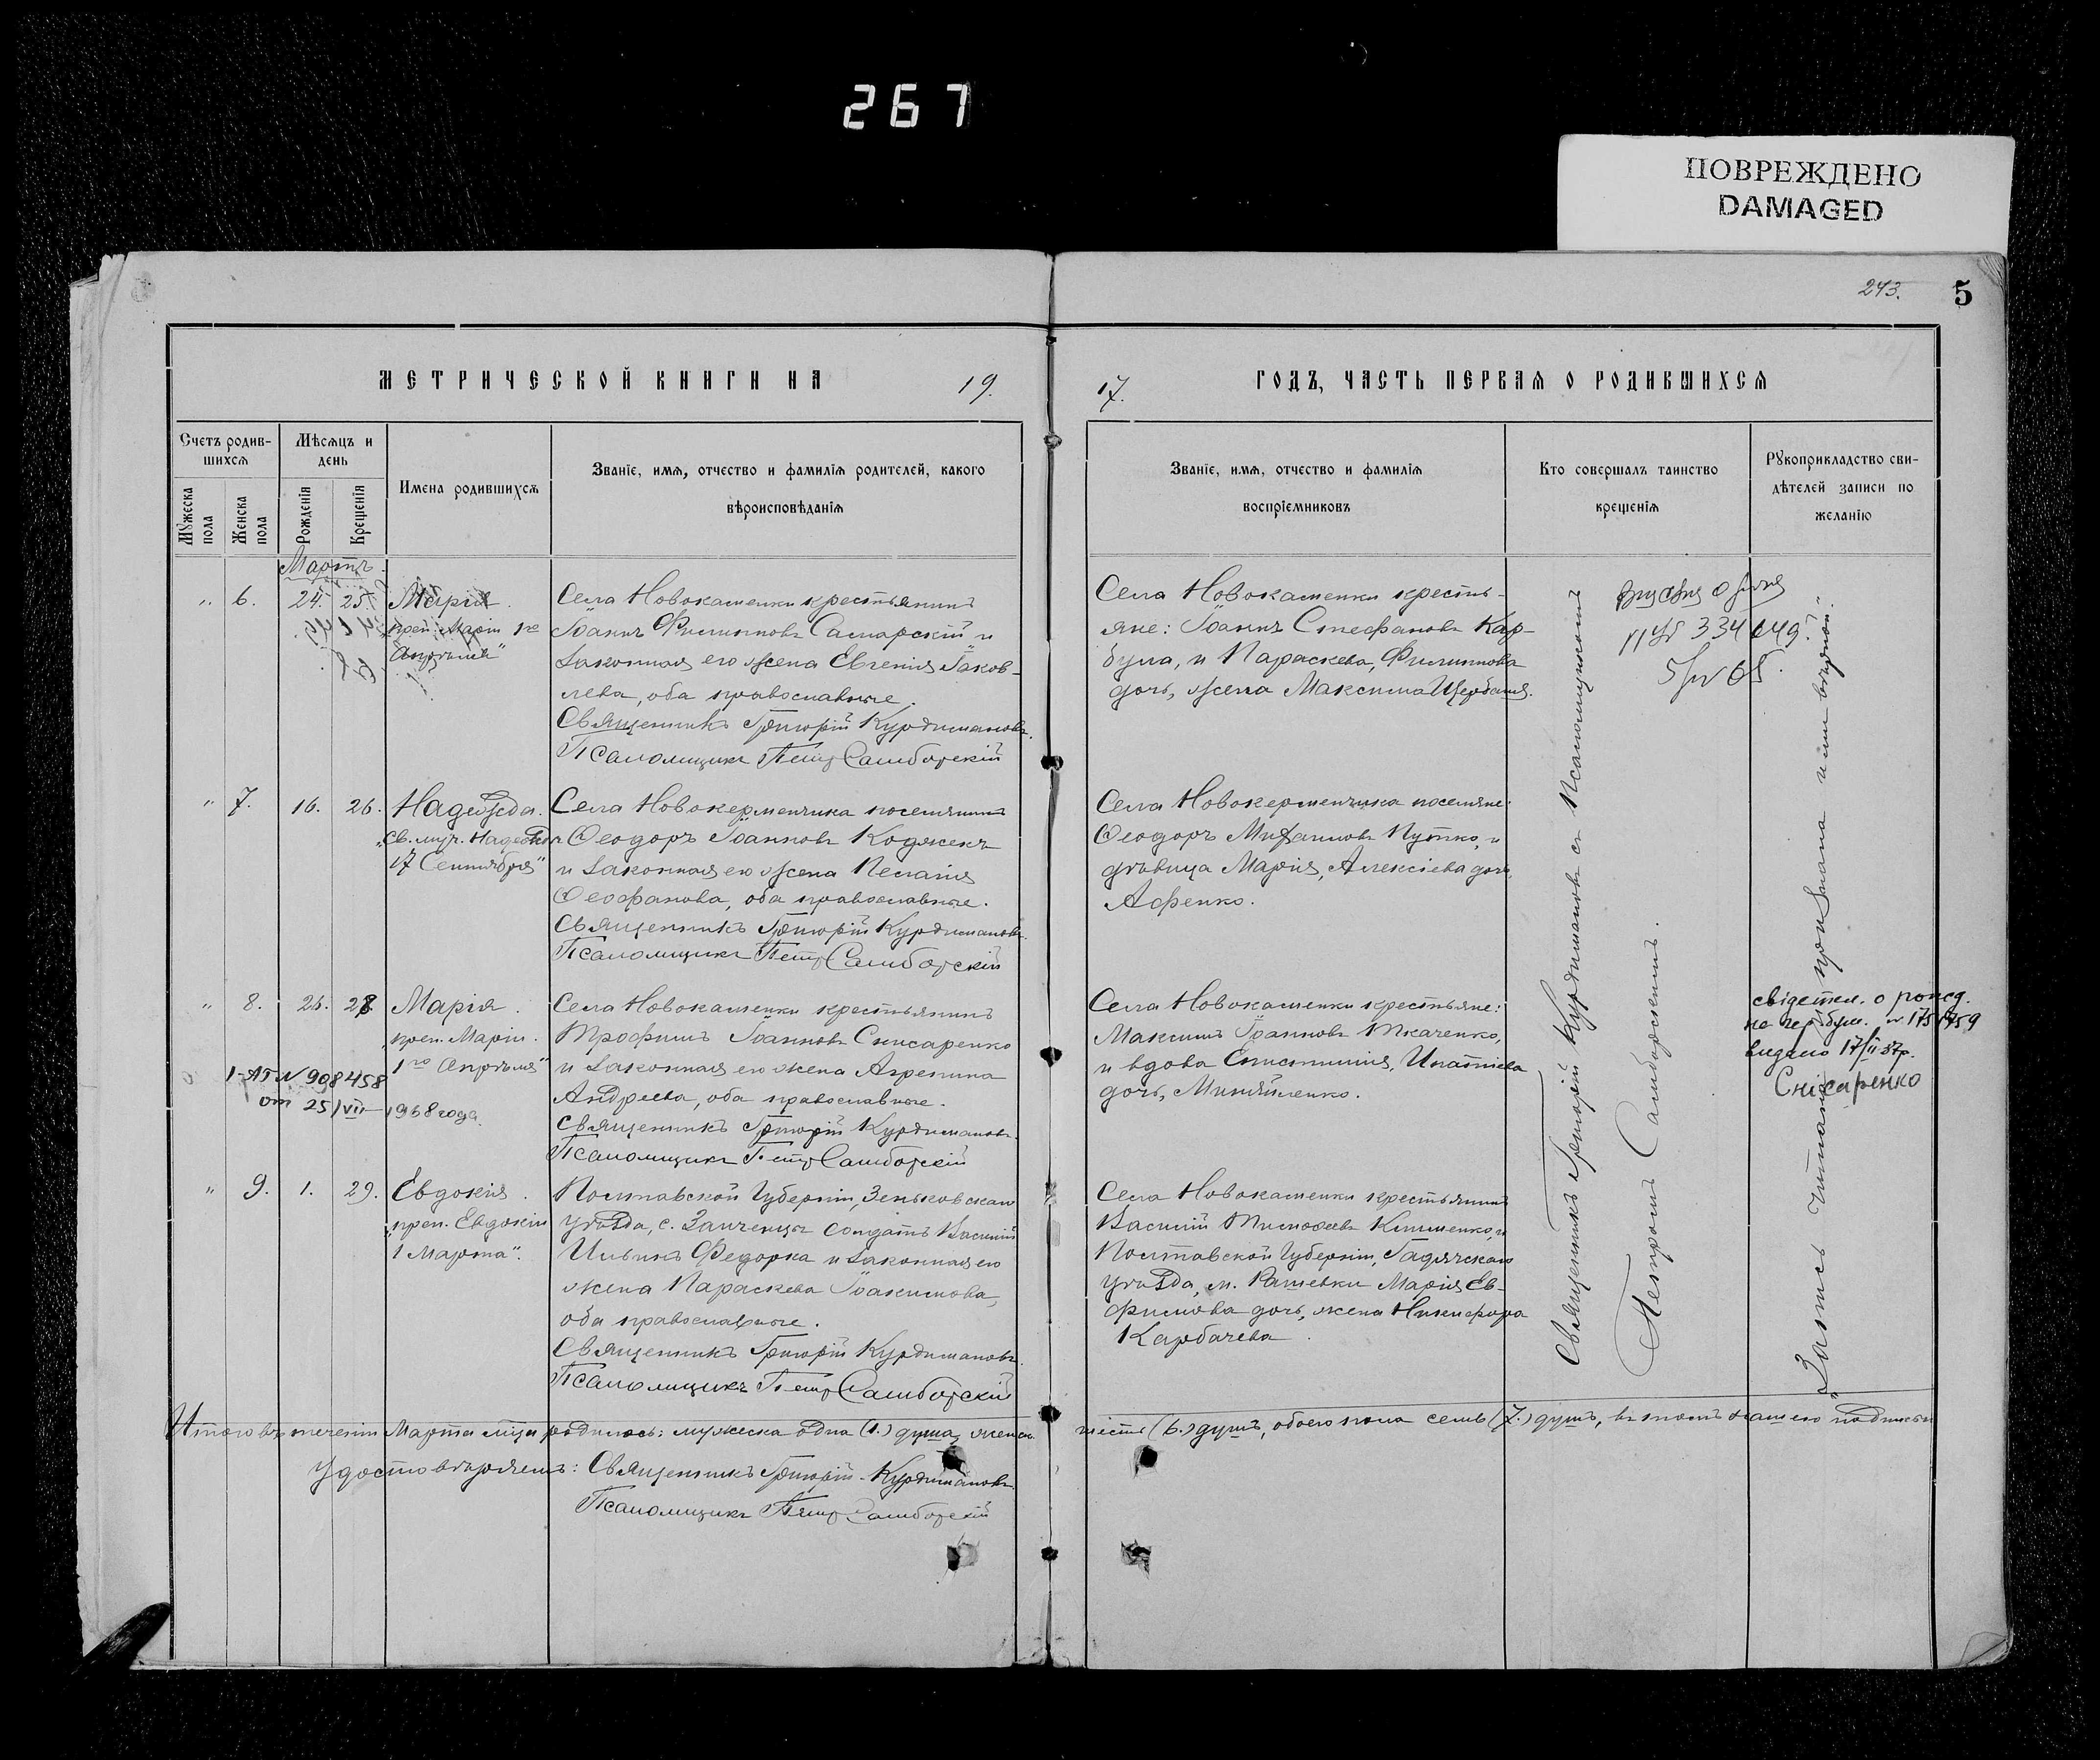 267
ПОВРЕЖДЕНО
DAMAGED
243.
5
МЕТРИЧЕСКОЙ КНИГИ НА 19.
17. ГОДЪ, ЧАСТЬ ПЕРВАЯ О РОДИВШИХСЯ
Счетъ родив-
шихся
Мѣсяцъ и
день
Мужеска
пола
Женска
пола
Рожденія
Крещенія
Имена родившихся
Званіе, имя, отчество и фамилія родителей, какого
вѣроисповѣданія
Званіе, имя, отчество и фамилія
воспріемниковъ
Кто совершалъ таинство
крещенія
Рукоприкладство сви-
дѣтелей записи по
желанію
Мартъ.
„ 6. 24. 25.
Марія.
преп. Маріи 1го
Апрѣля"
Села Новокаменки крестьянинъ
Іоаннъ Филипповъ Самарскій и
законная его жена Евгенія Іаков-
лева, оба православные.
Священникъ Григорій Курдимановъ.
Псаломщикъ Петр Самборскій
Села Новокаменки кресть-
яне: Іоаннъ Стефановъ Кар-
була, и Параскева, Филиппова
дочь, жена Максима Щербаня.
334049.
„ 7. 16. 26.
Надежда.
„Св. муч. Надежды
17 Сентября"
Села Новокерменчика поселянинъ
Ѳеодоръ Іоанновъ Коджекъ
и законная его жена Пелагія
Ѳеофанова, оба православные.
Священникъ Григорій Курдимановъ.
Псаломщикъ Петр Самборскій
Села Новокерменчика поселяне:
Ѳеодоръ Михаиловъ Путко, и
дѣвица Марія, Алексіева дочь,
Афенко.
„ 8. 26. 28.
Марія.
„преп. Маріи.
1го Апрѣля"
1-АГ N 908458
от 25/VII-1968 года.
Села Новокаменки крестьянинъ
Трофимъ Іоанновъ Снисаренко
и законная его жена Агрепина
Андреева, оба православные.
Священникъ Григорій Курдимановъ.
Псаломщикъ Петр Самборскій
Села Новокаменки крестьяне:
Максимъ Іоанновъ Ткаченко,
и вдова Епистимія, Ипатіева
дочь,
свідетел. о рожд.
видано 17/II 37р.
Снісаренко
„ 9. 1. 29.
Евдокія.
„преп. Евдокіи
1 Марта".
Полтавской Губерніи, Зеньковскаго
уѣзда, с. Заиченцы солдатъ Василій
Ильинъ Федорка и законная его
жена Параскева Іоакимова,
оба православные.
Священникъ Григорій Курдимановъ.
Псаломщикъ Петр Самборскій
Села Новокаменки крестьянинъ
Василій Тимофеевъ Клименко, и
Полтавской Губерніи, Гадячскаго
уѣзда, м. Рашевки Марія Ев-
фимова дочь, жена Никифора
Карбачева.
Священникъ Григорій Курдимановъ съ Псаломщикомъ
Петромъ Самборскимъ.
„Запись читана, признана и имъ вѣрной".
Итого въ теченіи Марта мца родилось: мужеска одна (1.) душа, женск.
шесть (6.) душъ, обоего пола семь (7.) душъ, въ томъ нашею подписью
удостовѣряемъ: Священникъ Григорій Курдимановъ.
Псаломщикъ Петр Самборскій